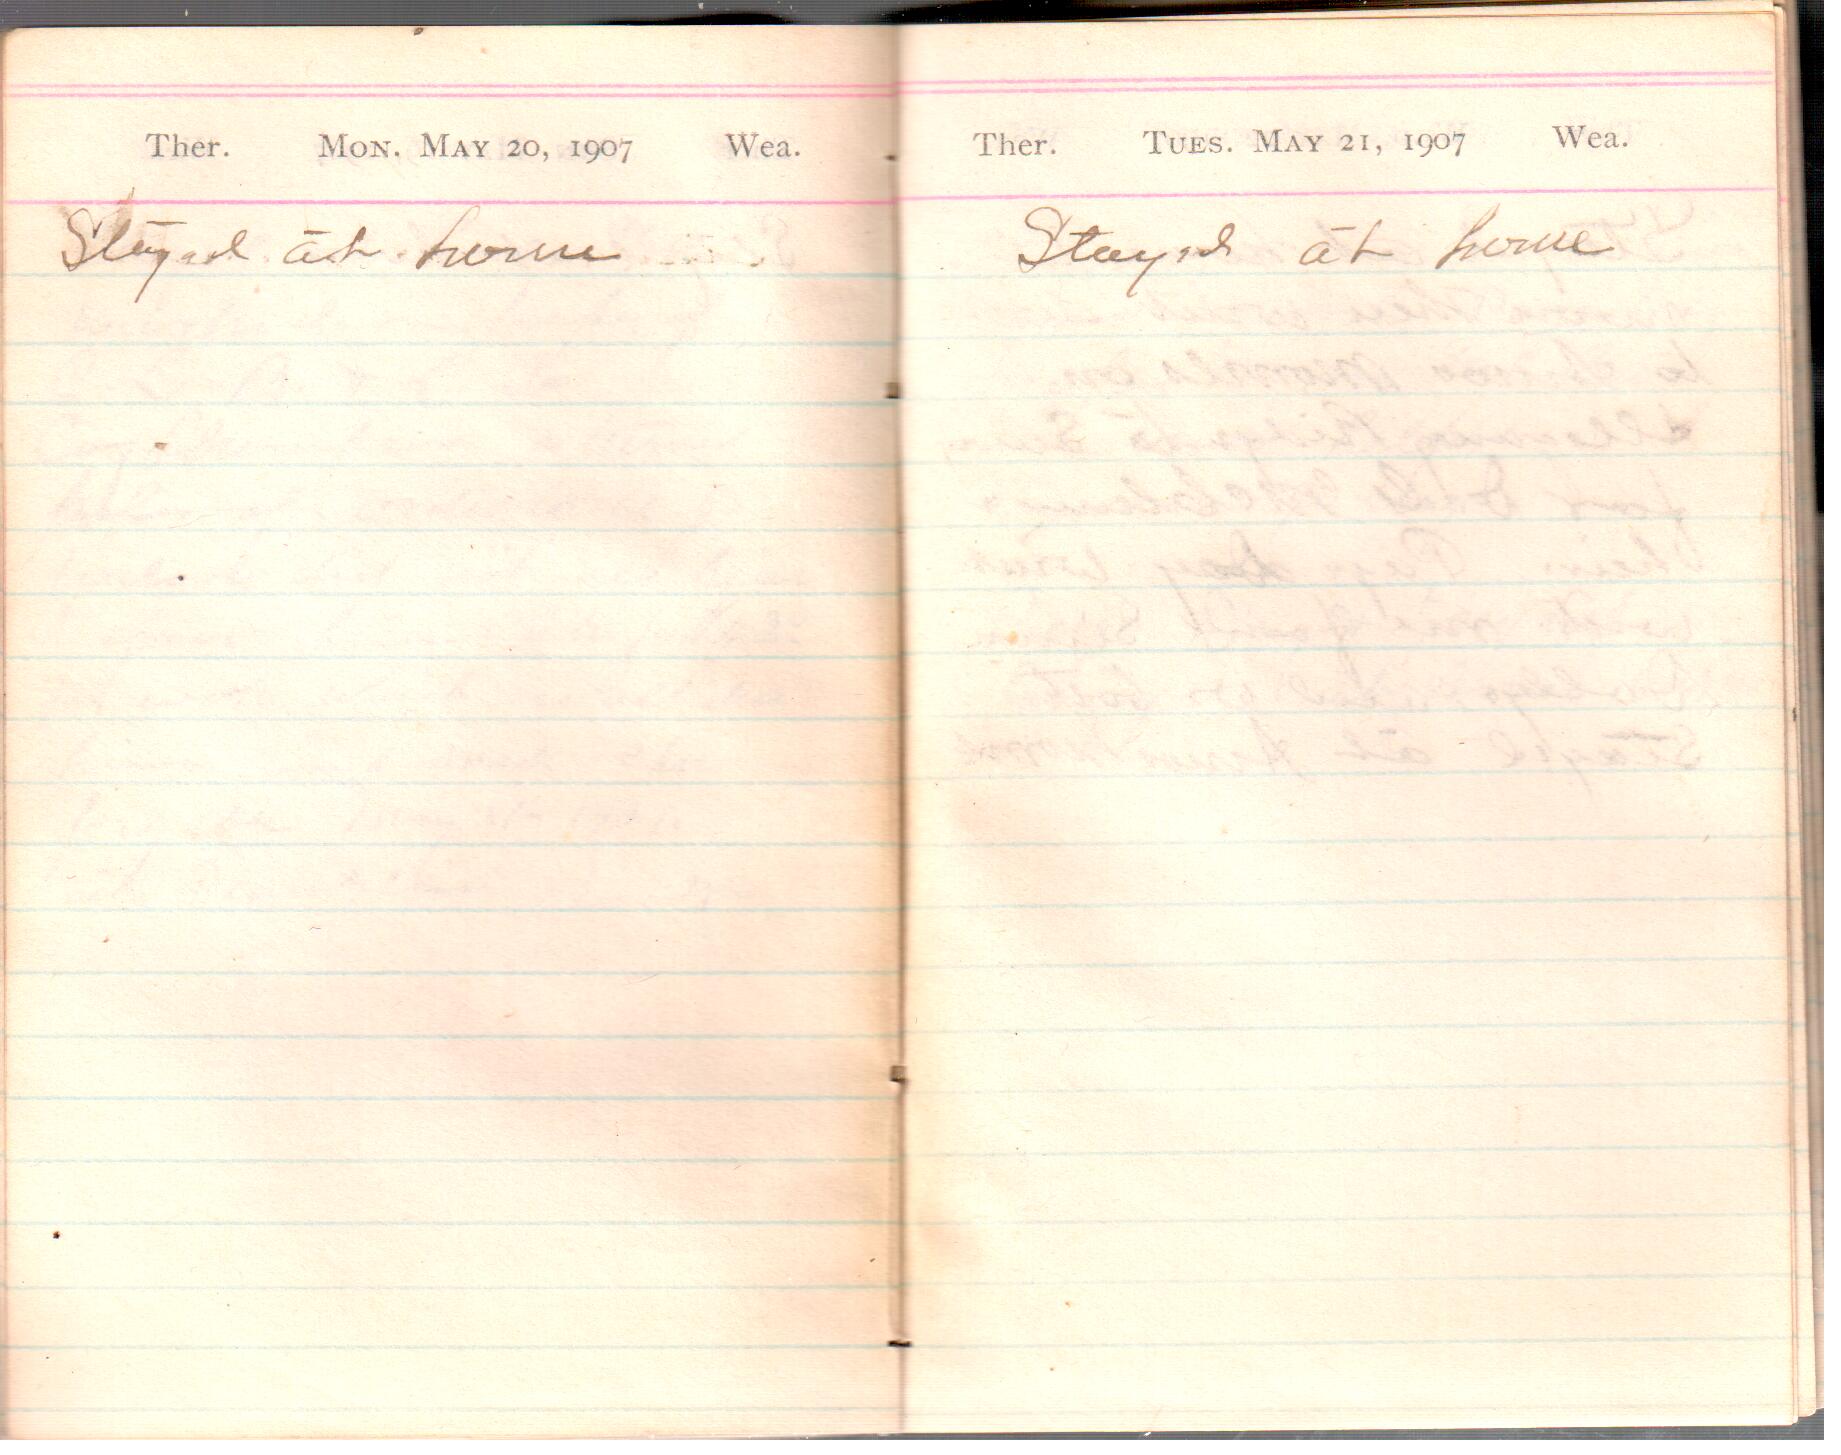 Ther. Mon. May 20, 1907 Wea.
Stayed at home
Ther. Tues. May 21, 1907 Wea.
Stayed at home